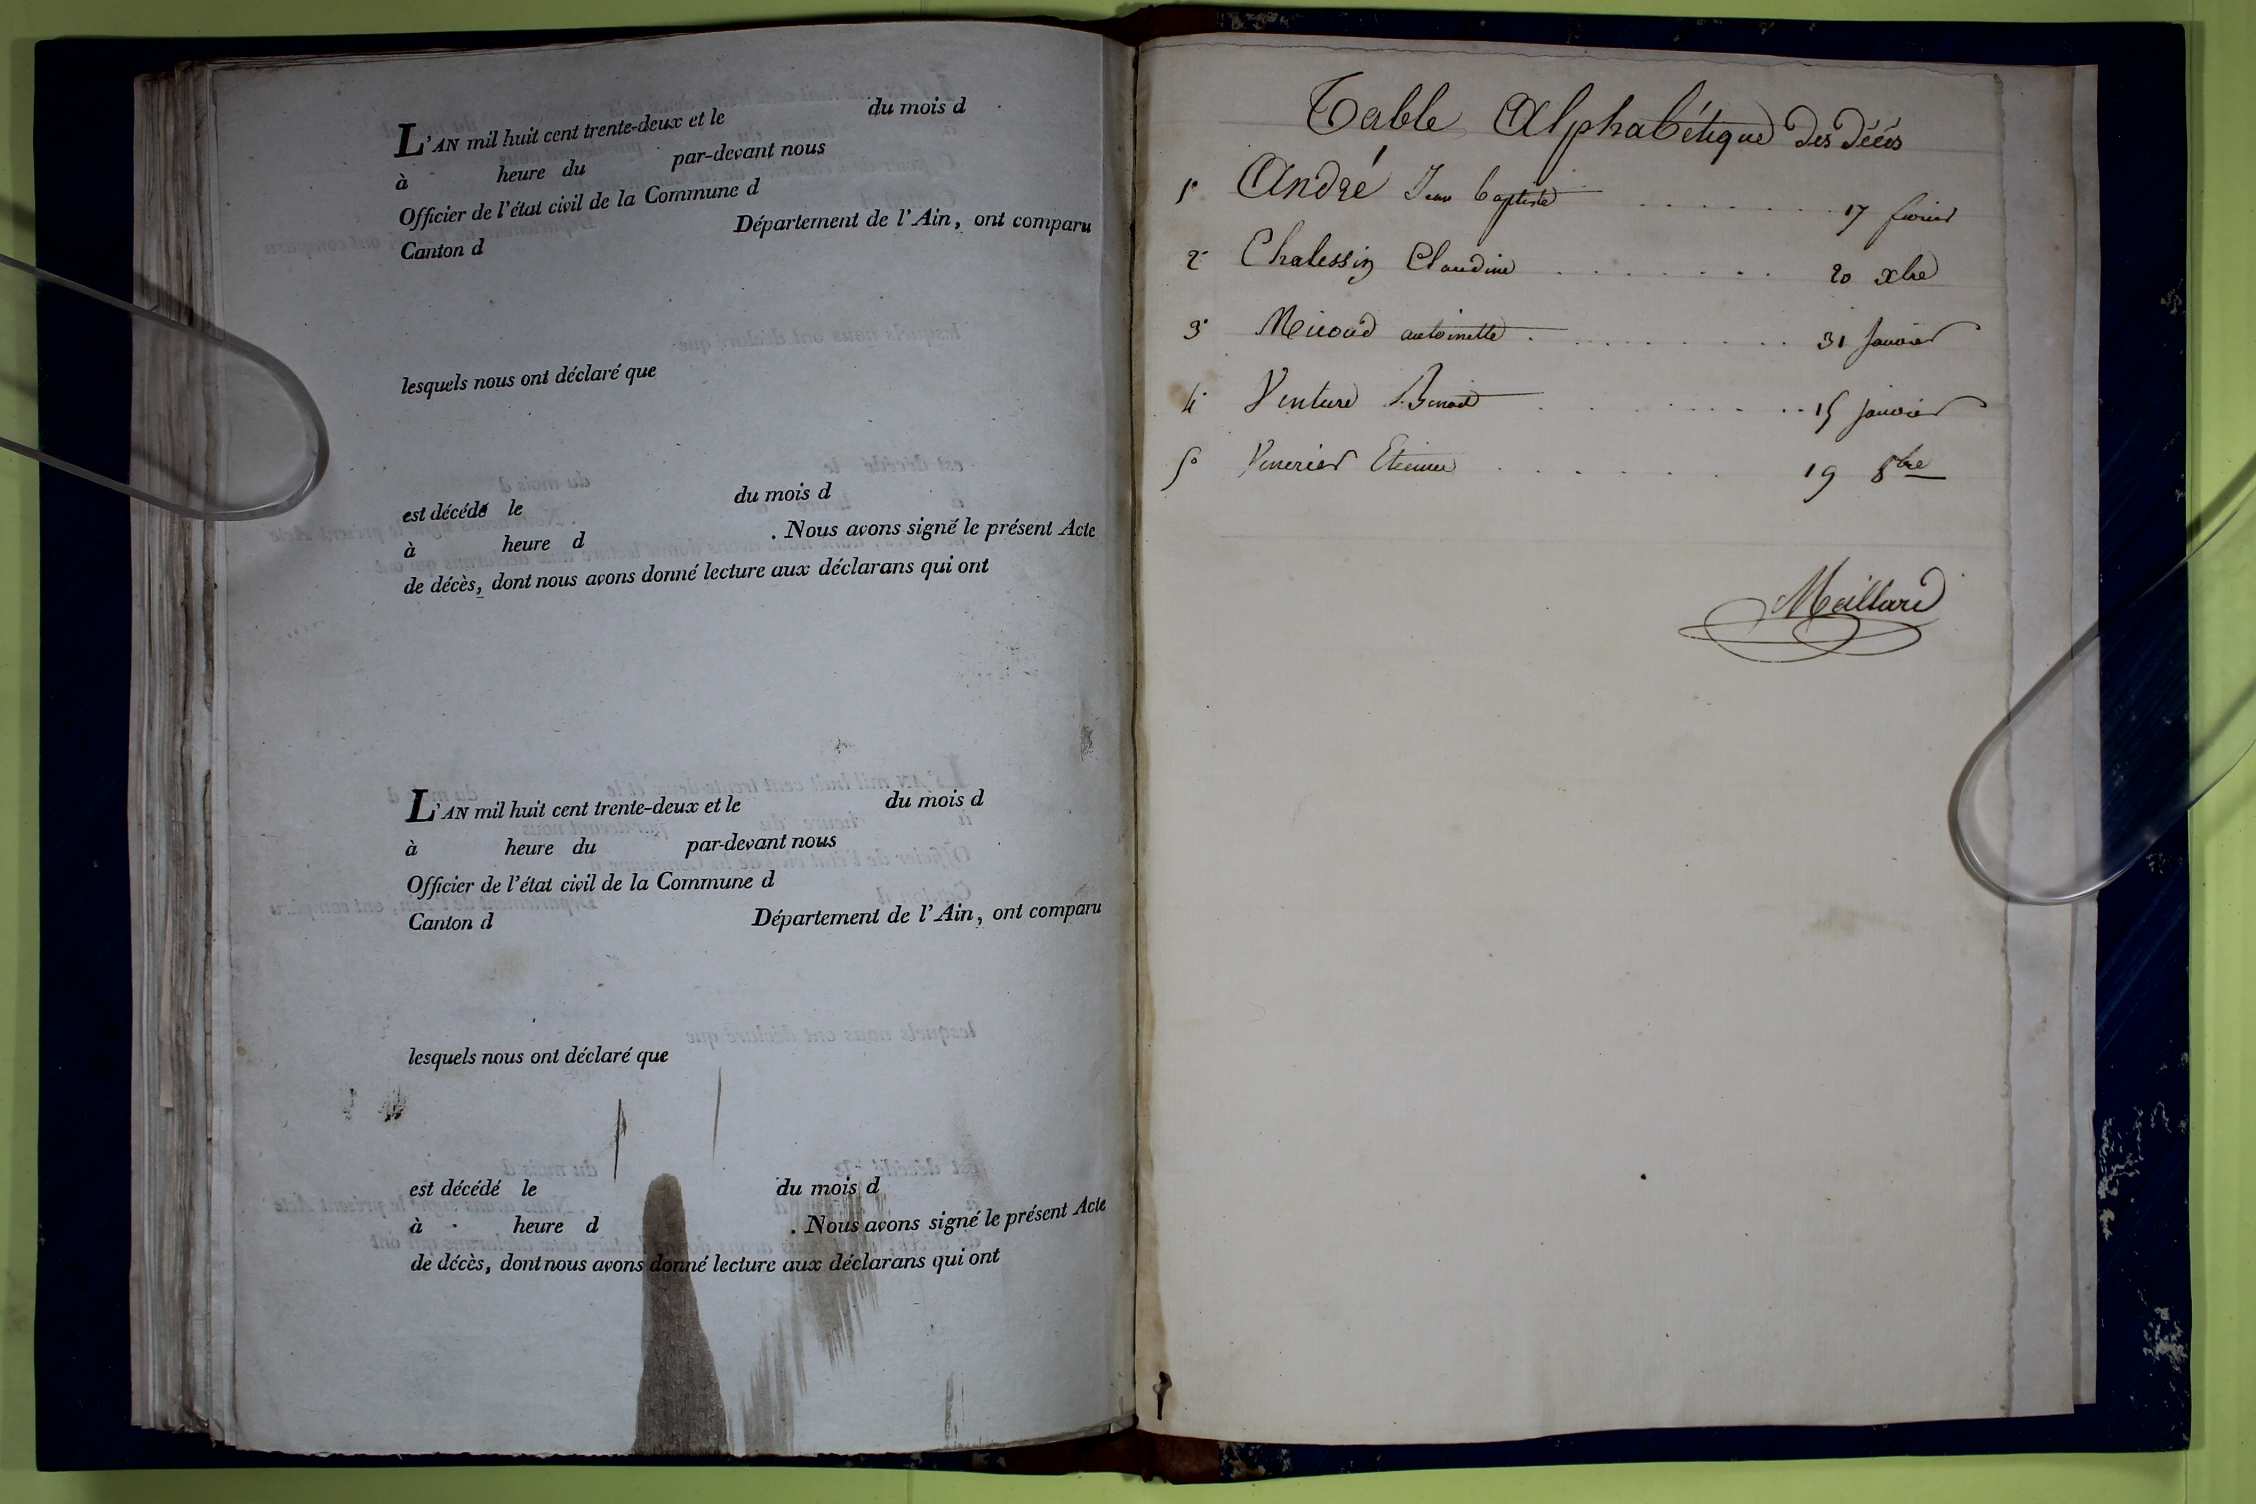 L'AN mil huit cent trente-deux et le du mois d
à heure du par-devant nous
Officier de l'état civil de la Commune d
Canton d Département de l'Ain, ont comparu
lesquels nous ont déclaré que
est décédé le du mois d
à heure d . Nous avons signé le présent Acte
de décès, dont nous avons donné lecture aux déclarans qui ont
L'AN mil huit cent trente-deux et le du mois d
à heure du par-devant nous
Officier de l'état civil de la Commune d
Canton d Département de l'Ain, ont comparu
lesquels nous ont déclaré que
est décédé le du mois d
à heure d . Nous avons signé le présent Acte
de décès, dont nous avons donné lecture aux déclarans qui ont
Table Alphabétique des décés
1° André Jean baptiste 17 fevrier
2° Chalessin Claudine 20 xbre
3° Micoud antoinette 31 Janvier
4° Venture Benoit 15 janvier
5° Etienne 19 8bre
Maillard